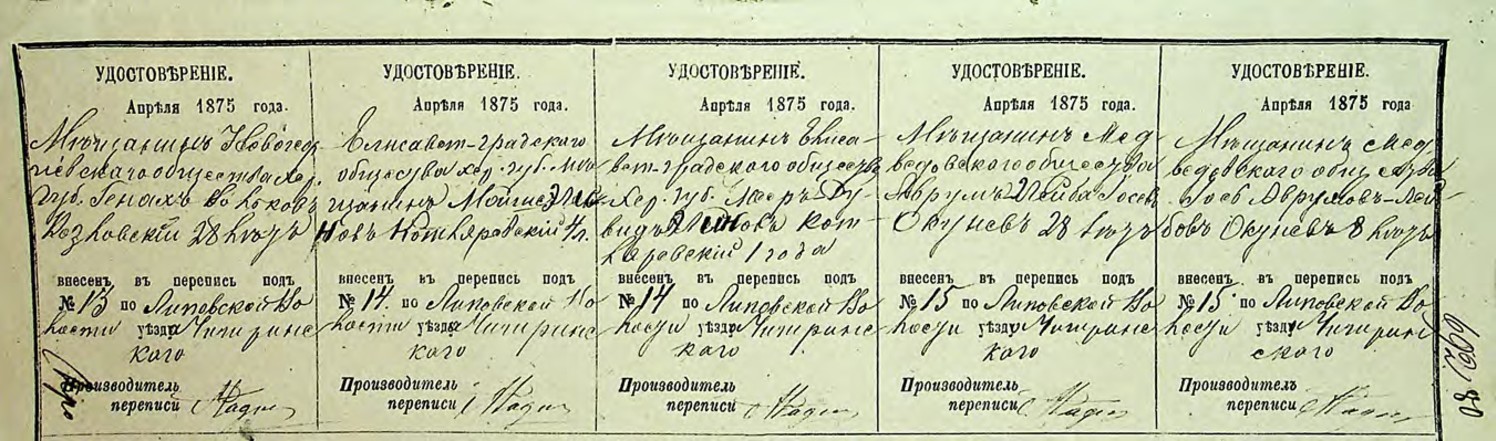 УДОСТОВѢРЕНІЕ.
Апрѣля 1875 года.
Мѣщанинъ Новогеор-
гіевскаго общества Хер.
Губ. Генахъ Вольковъ
28 лѣтъ
внесенъ въ перепись подъ
№ 13 по Липовской Во
лости уѣзда Чигиринс
каго
Производитель
переписи
УДОСТОВѢРЕНІЕ.
Апрѣля 1875 года.
Елисавет-градскаго
общества Хер. губ. мѣ
щанинъ Мойше
новъ Котляревскій 4 л.
внесенъ въ перепись подъ
№ 14. по Липовской Во
лости уѣзда Чигиринс
каго
Производитель
переписи
УДОСТОВѢРЕНІЕ.
Апрѣля 1875 года.
Мѣщанинъ Елиса-
вет-градскаго общества
Хер. Губ. Меер Ду-
видъ Кот
ляревскій 1 года
внесенъ въ перепись подъ
№ 14 по Липовской Во
лости уѣзда Чигиринс
каго
Производитель
переписи
УДОСТОВѢРЕНІЕ.
Апрѣля 1875 года.
Мѣщанинъ Мед
ведовскаго общества
Аврумъ Лейба Іосев
Окуневъ 28 лѣтъ
внесенъ въ перепись подъ
№ 15 по Липовской Во
лости уѣзда Чигиринс
каго
Производитель
переписи
УДОСТОВѢРЕНІЕ.
Апрѣля 1875 года
Мѣщанинъ Мед
ведовскаго общества
Іосъ Аврумовъ-Лей
бовъ Окуневъ 8 лѣтъ
внесенъ въ перепись подъ
№ 15 по Липовской Во
лости уѣзда Чигиринс
скаго
Производитель
переписи